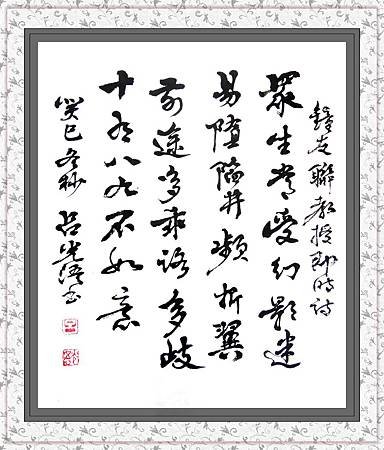 鍾友聯教授即時詩
眾生常受幻影迷
易墮陷井頻折翼
前途多乖路多歧
十有八九不如意
癸巳冬杪 呂光 書